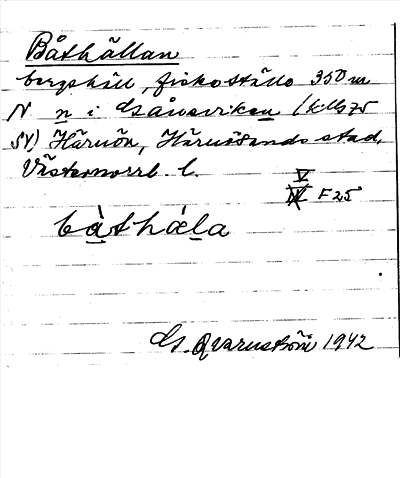 Båthällan
bergshäll, fiskeställe 350 m
N n i Gånsviken
SV) Härnön, Härnösands stad,
Västernorrl. l.
V
IV F25
bàthǽla
G. Qvarnström 1942